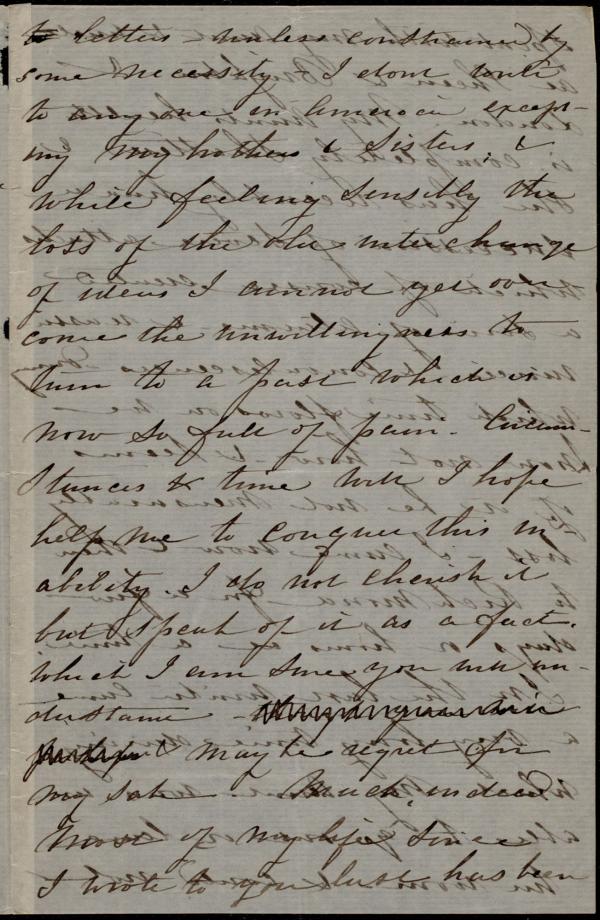 to letters unless constrained by
some necessity. I dont write
to any one in America except-
my my brothers & Sisters, &
while feeling sensibly the
loss of the old interchange
of ideas I cannot yet over
come the unwillingness to
turn to a past which is
now so full of pain - Circum-
stances & time will I hope
help me to conquer this in
ability. I do not cherish it
but speak of it as a fact.
which I am sure you will un-
derstand -
& maybe regret for
my sake. Much, indeed
most of my life since
I wrote to you last has been